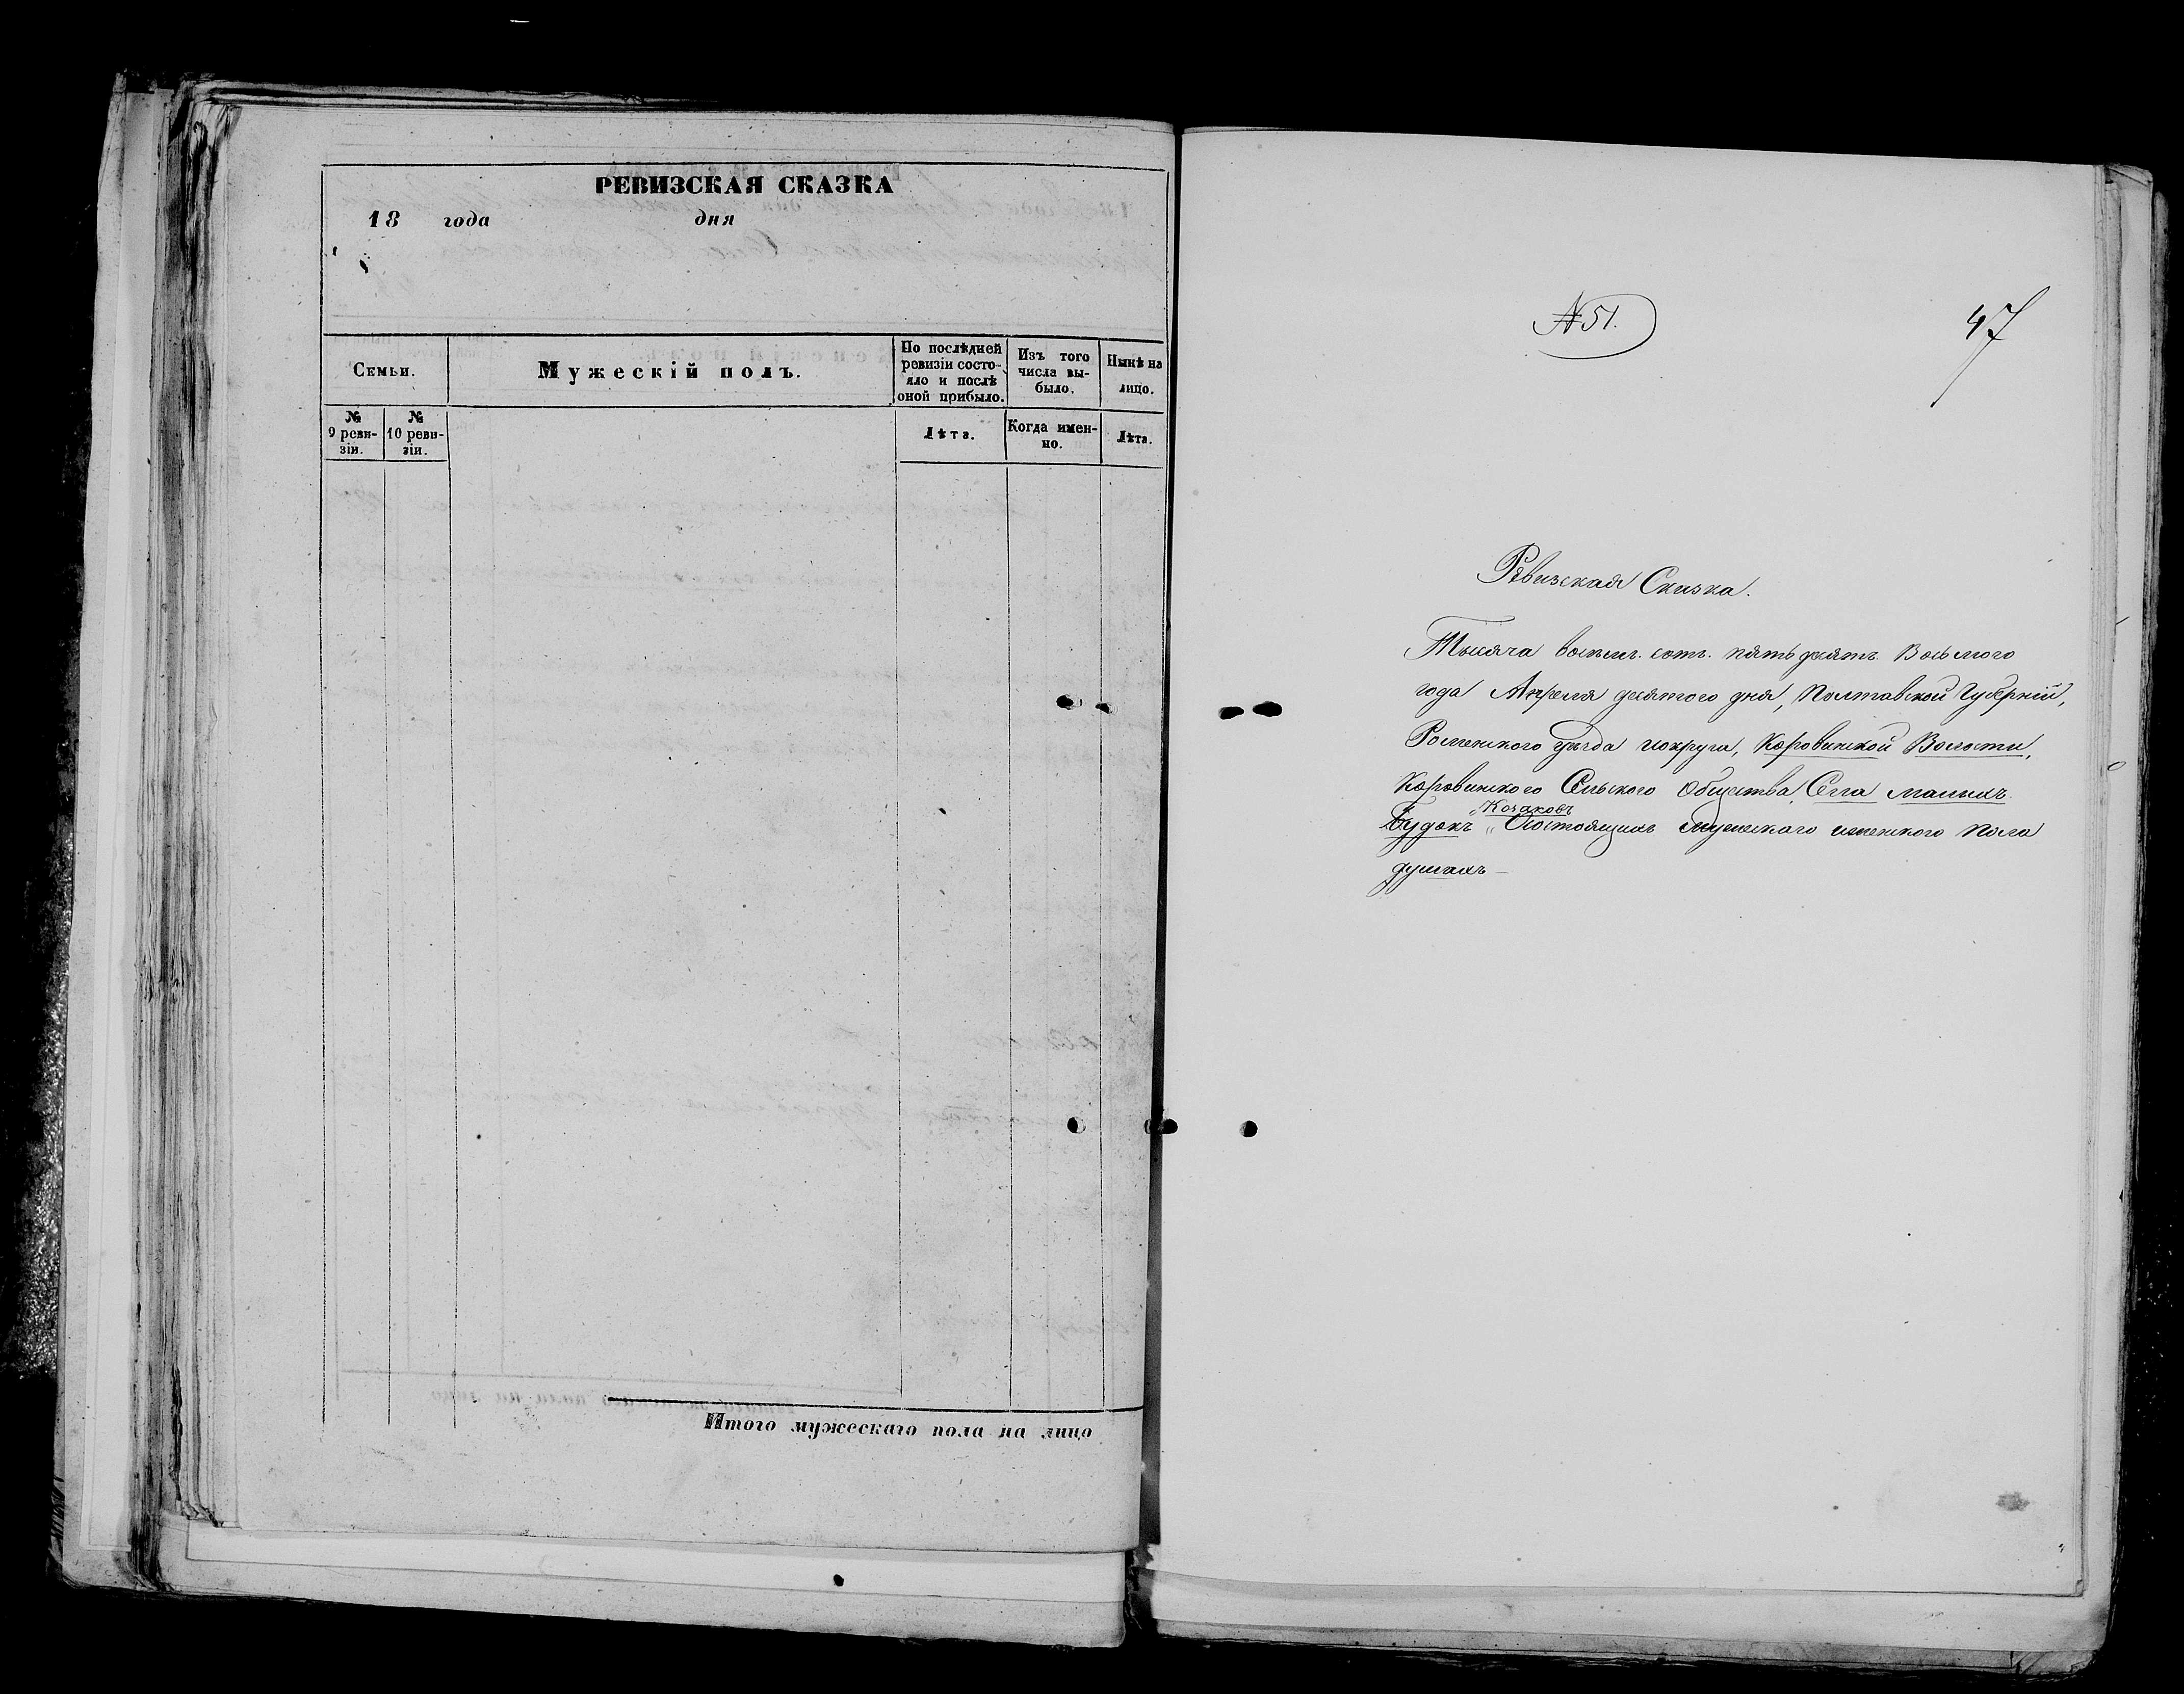 РЕВИЗСКАЯ СКАЗКА
18 года дня
Семьи.
Мужескій полъ.
По послѣдней
ревизіи состо-
яло и послѣ
оной прибыло.
Изъ того
числа вы-
было.
Нынѣ на
лицо.
№
9 реви-
зіи.
№
10 реви-
зіи.
Лѣта.
Когда имен-
но.
Лѣта.
Итого мужескаго пола на лицо
№ 51.
47
Ревизская Сказка.
Тысяча восемь сотъ пять десятъ Восьмого
года Апреля десятого дня, Полтавской Губерніи,
Роменского уѣзда и округа, Коровинской Волости,
Коровинского Сельского Общества, Села малихъ
Козаковъ
Будокъ Состоящихъ мужескаго и женского пола
душахъ —